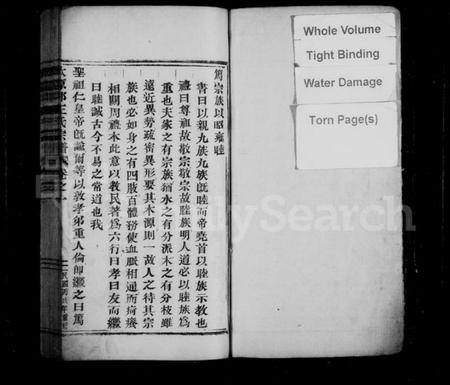 篤宗族以昭雍睦
書曰以親九族九族既睦而帝堯首以睦族示教也
禮曰尊祖故敬宗敬宗故睦族明人道必以睦族為
重也夫家之有宗族猶水之有分派木之有分枝雖
遠近異勢疏密異形要其本源則一故人之待其宗
族也必如身之有四肢百體務使血脈相通而疴癢
相關周禮本此意以教民著為六行曰孝曰友而繼
曰睦誠古今不易之常道也我
聖祖仁皇帝既諭爾等以敦孝弟重人倫即繼之曰篤
太原郡王氏宗譜 卷之一
Whole Volume
Tight Binding
Water Damage
Torn Page(s)
FamilySearch